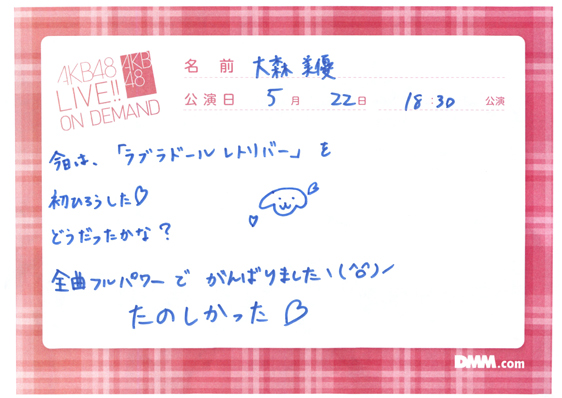 AKB48
LIVE!!
ON DEMAND
AKB
48
名 前 大森 美優
公演日 5月 22日 18:30 公演
今日は、「ラブラドール レトリバー」を
初ひろうした♡
どうだったかな?
全曲フルパワーで がんばりましたヽ(^o^)ノ
たのしかった♡
DMM.com